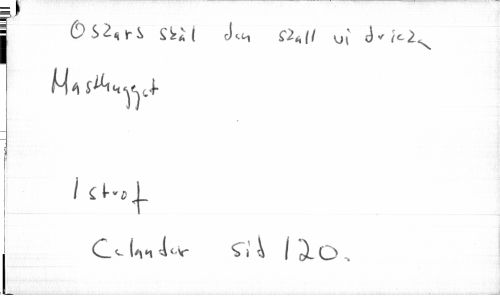 Oszars szål den szall vi dricza
Masthugget
1 strof
Celander sid 120.